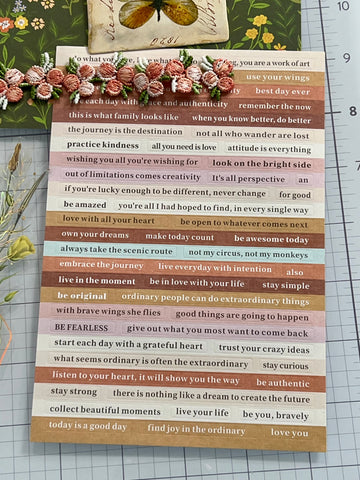 do what you
you are a work of art
use your wings
best day ever
each day with grace and authenticity remember the now
this is what family looks like when you know better, do better
the journey is the destination not all who wander are lost
practice kindness all you need is love attitude is everything
wishing you all you're wishing for look on the bright side
out of limitations comes creativity It's all perspective an
if you're lucky enough to be different, never change for good
be amazed you're all I had hoped to find, in every single way
love with all your heart be open to whatever comes next
own your dreams make today count be awesome today
always take the scenic route not my circus, not my monkeys
embrace the journey live everyday with intention also
live in the moment be in love with your life stay simple
be original ordinary people can do extraordinary things
with brave wings she flies good things are going to happen
BE FEARLESS give out what you most want to come back
start each day with a grateful heart trust your crazy ideas
what seems ordinary is often the extraordinary stay curious
listen to your heart, it will show you the way be authentic
stay strong there is nothing like a dream to create the future
collect beautiful moments live your life be you, bravely
today is a good day find joy in the ordinary love you
8
7
6
5